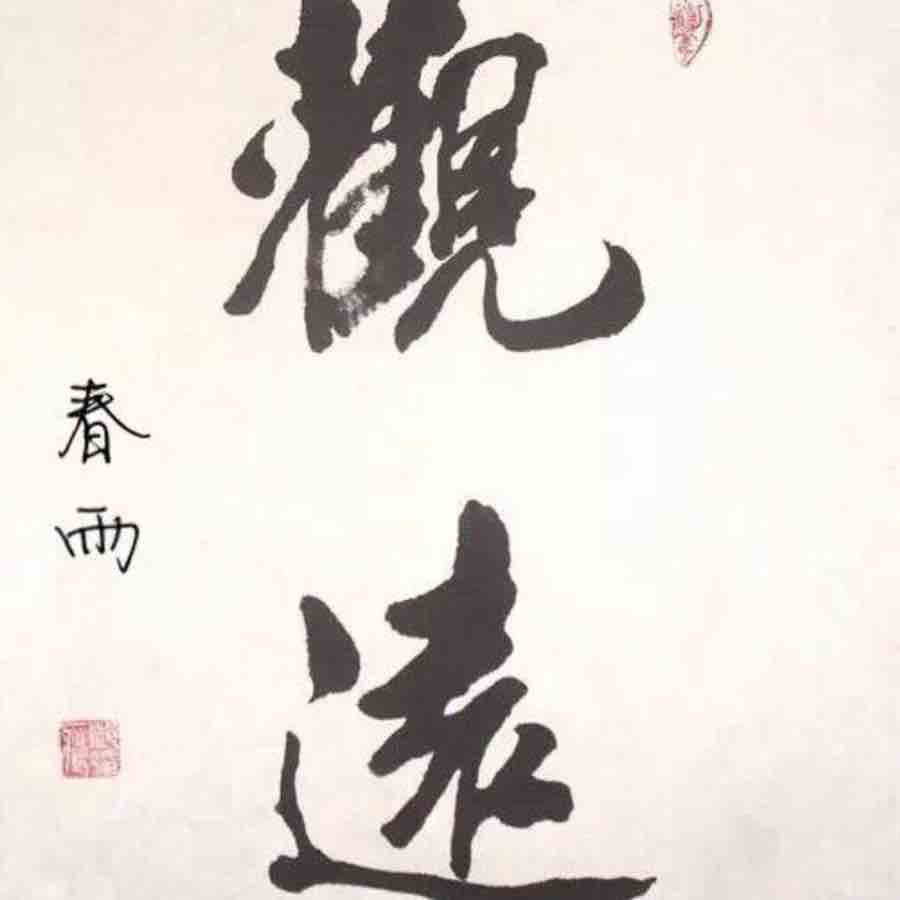 觀遠
春雨